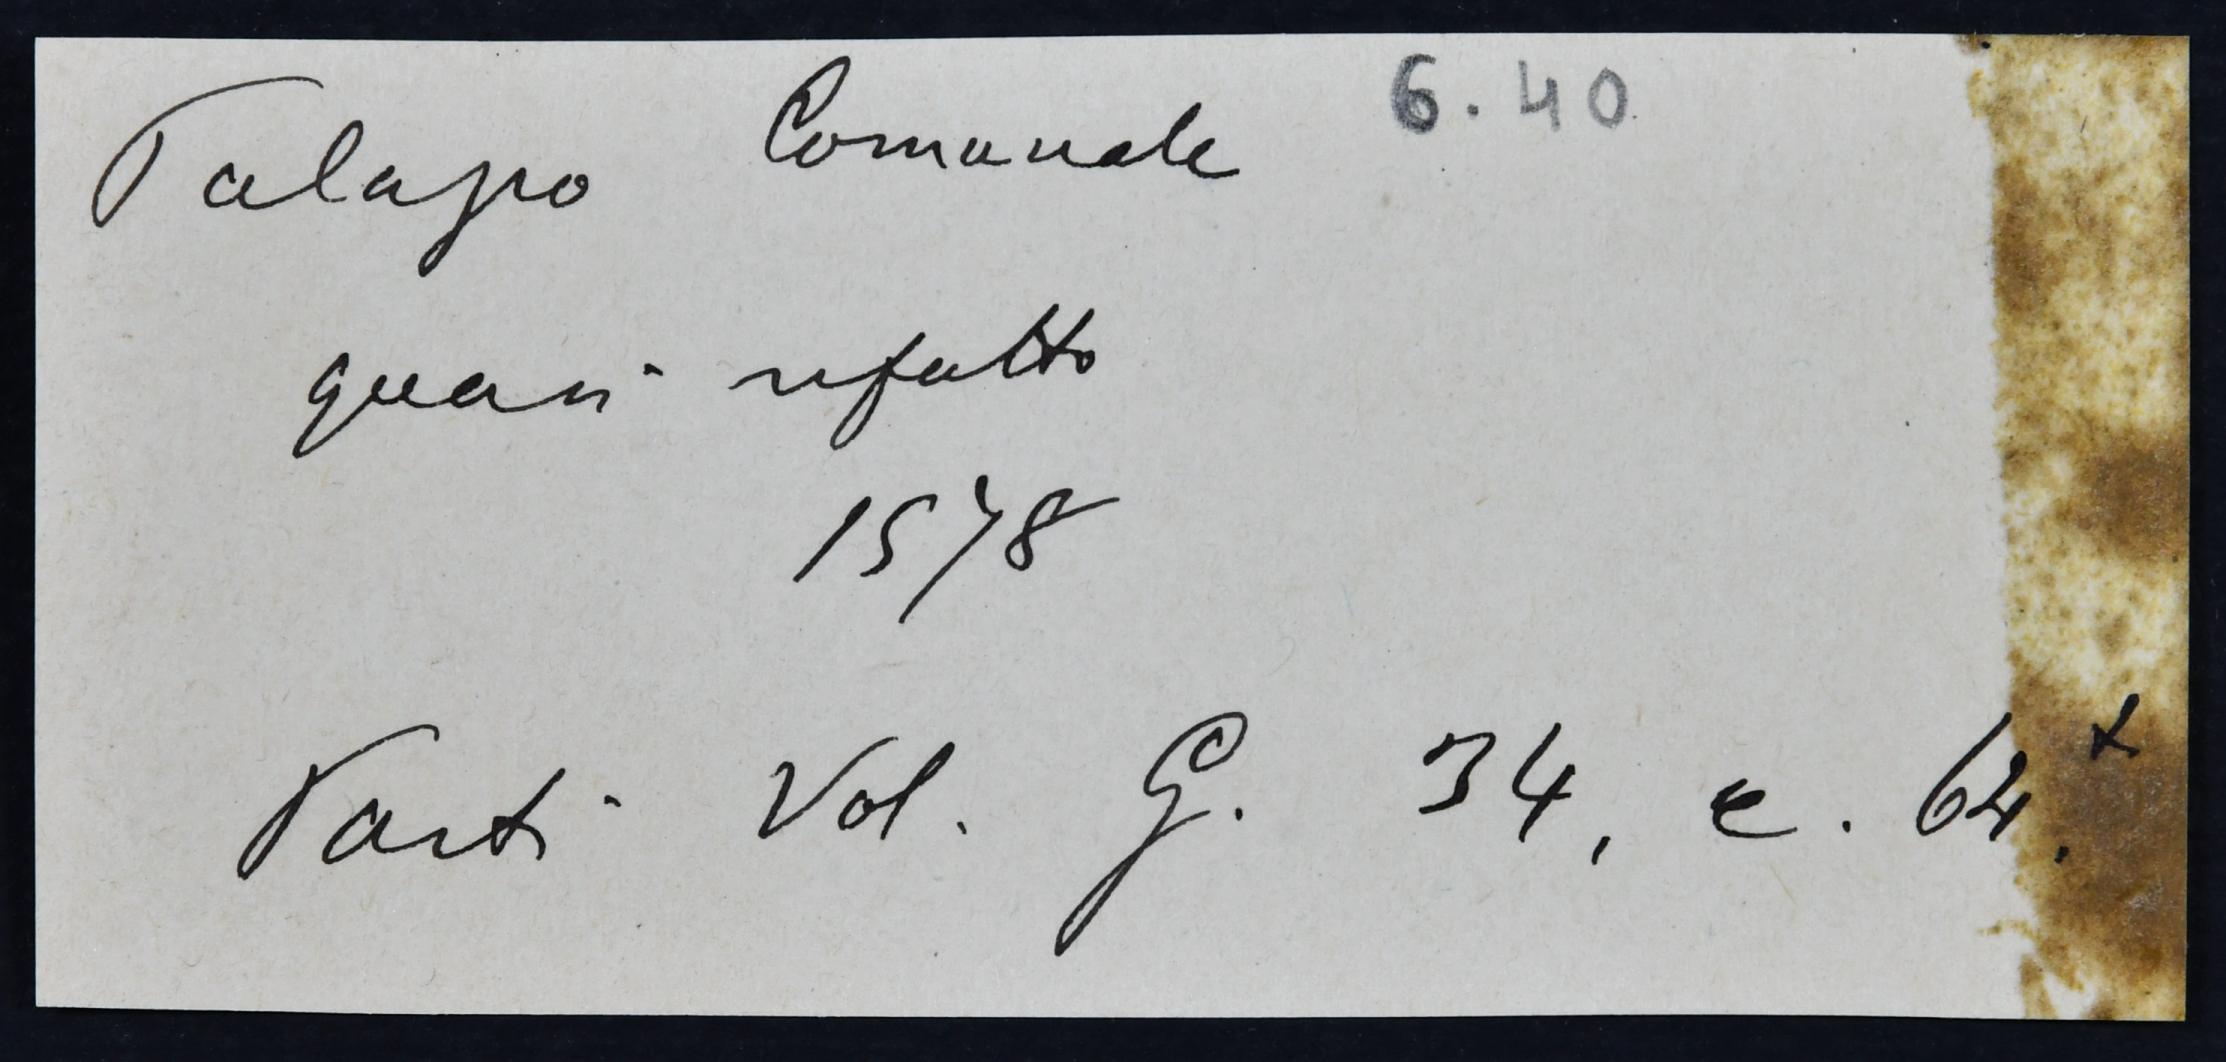 Palazzo Comunale 6.40
quasi rifatto
1578
Parti Vol. G. 34, c. 64.t